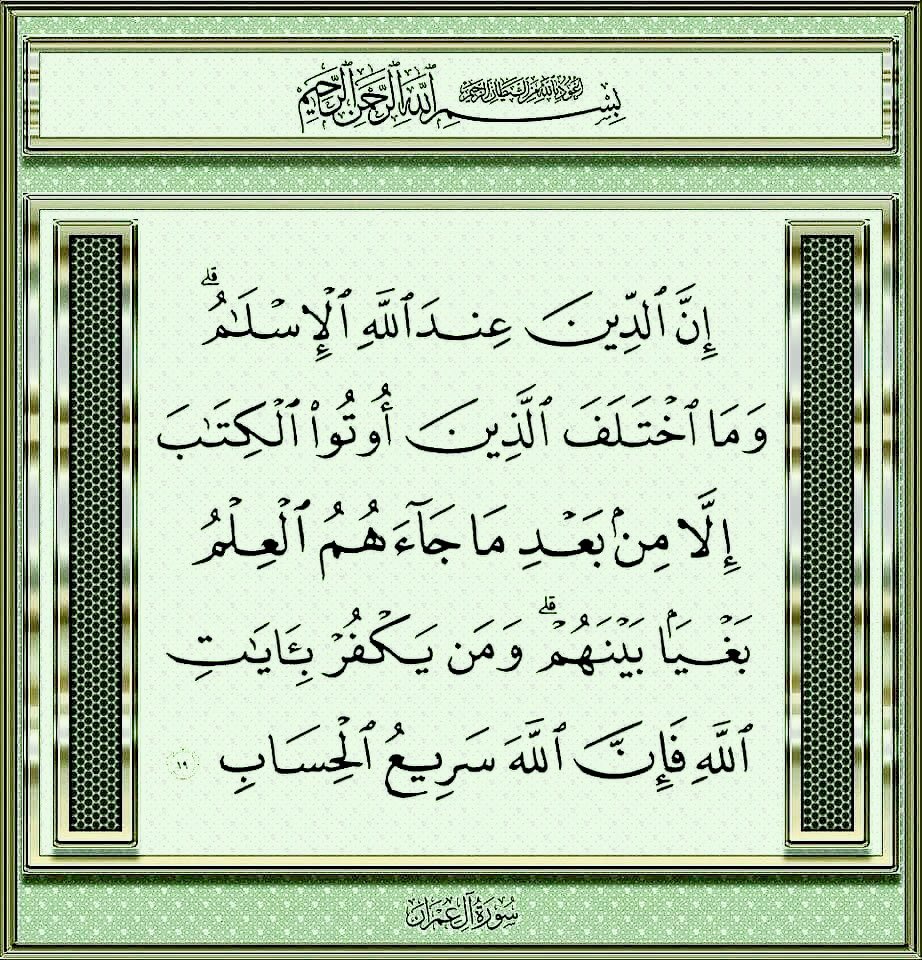 أعوذ بالله من الشيطان الرجيم
بِسْمِ ٱللَّهِ ٱلرَّحْمَٰنِ ٱلرَّحِيمِ
إِنَّ ٱلدِّينَ عِندَ ٱللَّهِ ٱلْإِسْلَٰمُ ۗ
وَمَا ٱخْتَلَفَ ٱلَّذِينَ أُوتُوا۟ ٱلْكِتَٰبَ
إِلَّا مِنۢ بَعْدِ مَا جَآءَهُمُ ٱلْعِلْمُ
بَغْيًۢا بَيْنَهُمْ ۗ وَمَن يَكْفُرْ بِـَٔايَٰتِ
ٱللَّهِ فَإِنَّ ٱللَّهَ سَرِيعُ ٱلْحِسَابِ ١٩
سُورَةُ آلِ عِمْرَان